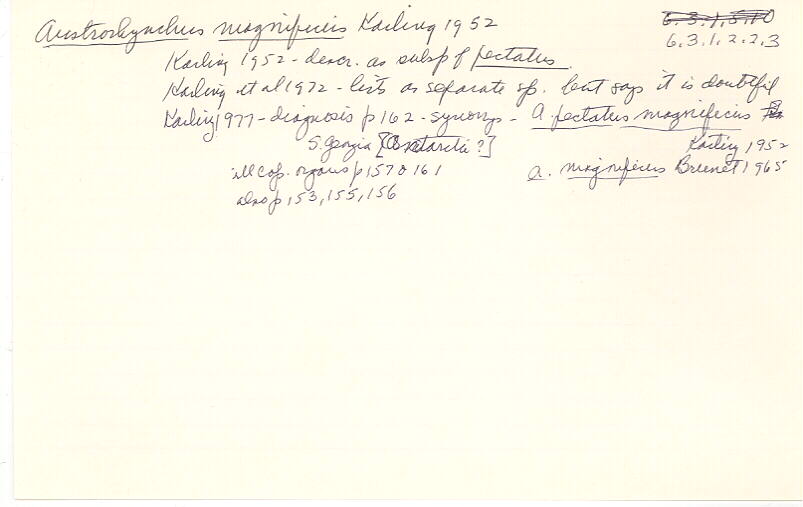 Austrorhynchus magnificus Karling 1952
6.3.1.5.10
6.3.1.2.2.3
Karling 1952 - descr. as subsp of pectatus.
Karling et al 1972 - lists as separate sp. but says it is doubtful
Karling 1977 - diagnosis p 162 - synonyms - A. pectatus magnificus
Karling 1952
S. Georgia [Antarctic?]
ill cop. organs p 157 & 161
A. magnificus Brunet 1965
also p 153, 155, 156